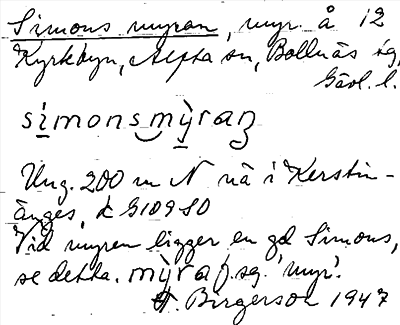 Simons myran, myr. å 12
Kyrkbyn, Alfta sn, Bollnäs sg,
Gävl. l.
simonsmỳraꞥ
Ung. 200 m N nä i Kerstin-
änges, k G109 SO
Vid myren ligger en gd Simons,
se detta. mỳra f. sg. 'myr'.
A. Birgerson 1947